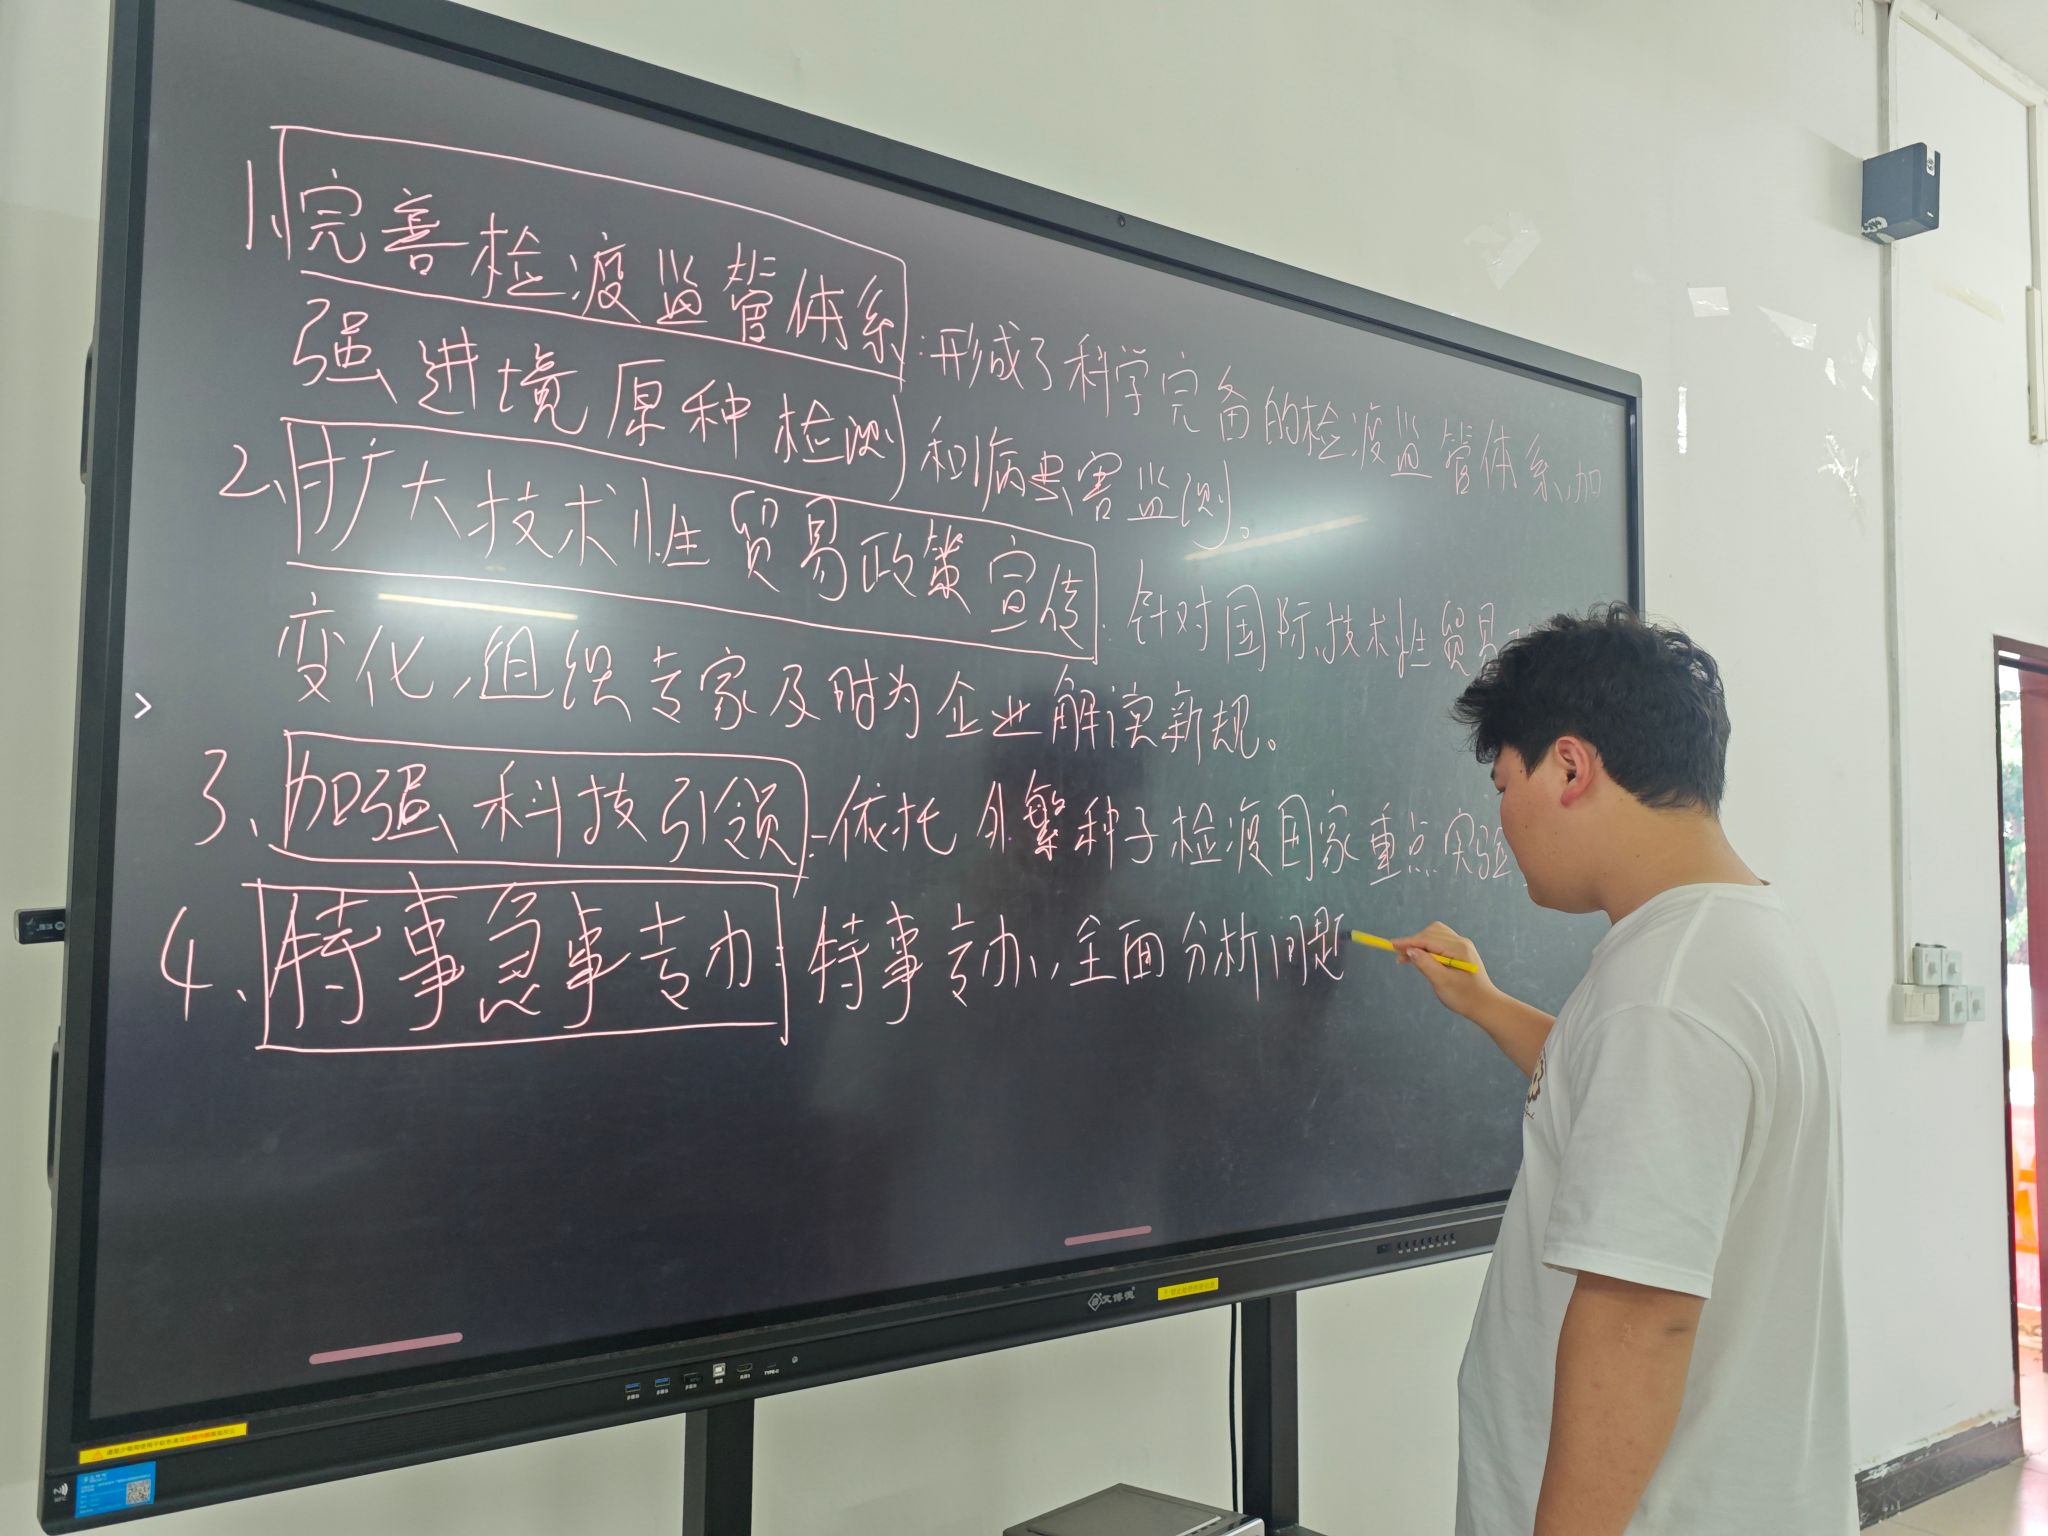 1、完善检疫监管体系:形成了科学完备的检疫监管体系,加
强进境原种检测和病虫害监测。
2、扩大技术性贸易政策宣传:针对国际技术性贸易
变化,组织专家及时为企业解读新规。
3、加强科技引领:依托外繁种子检疫国家重点实验
4、特事急事专办:特事专办,全面分析问题